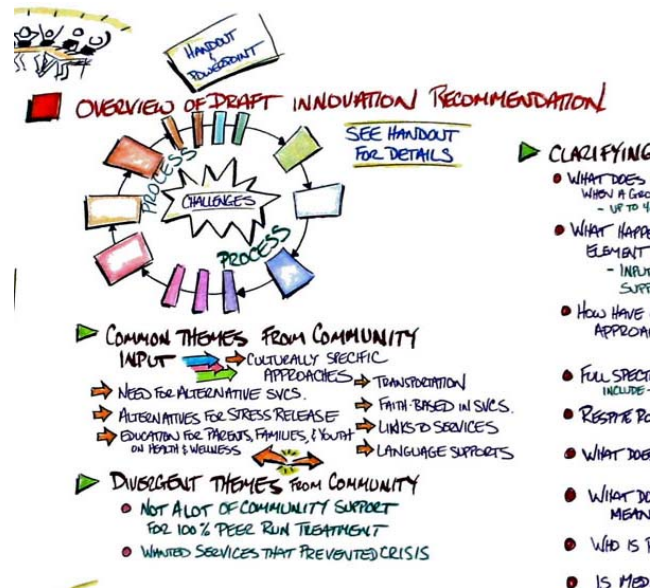 HANDOUT
&
POWERPOINT
OVERVIEW OF DRAFT INNOVATION RECOMMENDATION
SEE HANDOUT
FOR DETAILS
PROCESS
CHALLENGES
PROCESS
COMMON THEMES FROM COMMUNITY
INPUT
CULTURALLY SPECIFIC
APPROACHES
NEED FOR ALTERNATIVE SVCS.
ALTERNATIVES FOR STRESS RELEASE
EDUCATION FOR PARENTS, FAMILIES, & YOUTH
ON HEALTH & WELLNESS
TRANSPORTATION
FAITH-BASED IN SVCS.
LINKS TO SERVICES
LANGUAGE SUPPORTS
DIVERGENT THEMES FROM COMMUNITY
NOT A LOT OF COMMUNITY SUPPORT
FOR 100% PEER RUN TREATMENT
WANTED SERVICES THAT PREVENTED CRISIS
CLARIFYING
WHAT DOES
WHEN A
- UP TO
WHAT
ELEMENT
-
HOW HAVE
FULL
INCLUDE -
RESPITE
WHAT
WHAT
WHO IS
IS